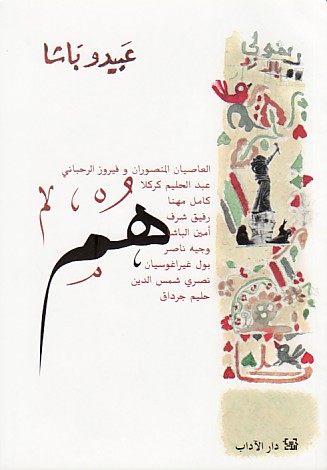 عَبيدو بَاشا
العاصيان المنصوران و فيروز الرحباني
عبد الحليم كركلا
كامل مهنا
رفيق شرف
أمين الباشا
وجيه ناصر
بول غيراغوسيان
نصري شمس الدين
حليم جرداق
هُم
دار الآداب